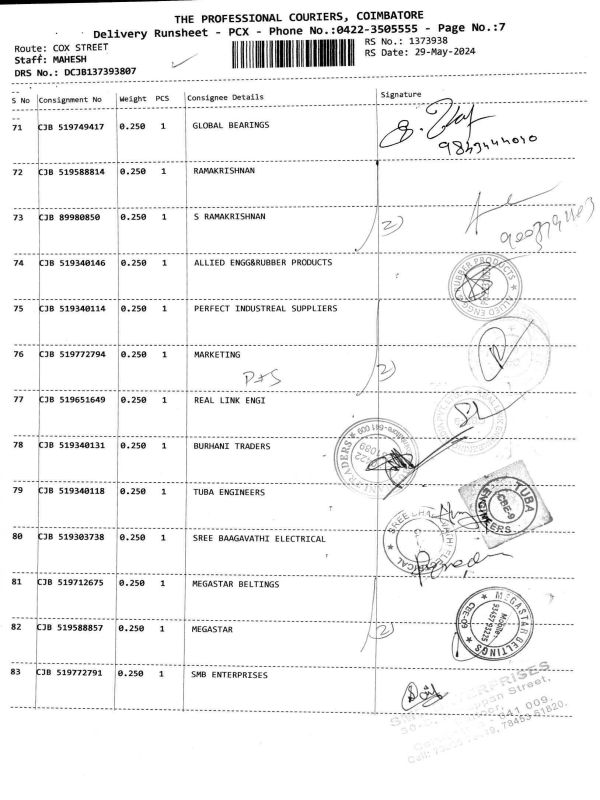 THE PROFESSIONAL COURIERS, COIMBATORE
Delivery Runsheet - PCX - Phone No.:0422-3505555 - Page No.:7
Route: COX STREET
RS No.: 1373938
Staff: MAHESH
RS Date: 29-May-2024
DRS No.: DCJB137393807
S No Consignment No Weight PCS Consignee Details Signature
71 CJB 519749417 0.250 1 GLOBAL BEARINGS
72 CJB 519588814 0.250 1 RAMAKRISHNAN
73 CJB 89980850 0.250 1 S RAMAKRISHNAN 2)
74 CJB 519340146 0.250 1 ALLIED ENGG&RUBBER PRODUCTS
75 CJB 519340114 0.250 1 PERFECT INDUSTREAL SUPPLIERS
76 CJB 519772794 0.250 1 MARKETING 2)
P+S
77 CJB 519651649 0.250 1 REAL LINK ENGI
78 CJB 519340131 0.250 1 BURHANI TRADERS
79 CJB 519340118 0.250 1 TUBA ENGINEERS
TUBA ENGINEERS
CBE-9
80 CJB 519303738 0.250 1 SREE BAAGAVATHI ELECTRICAL
81 CJB 519712675 0.250 1 MEGASTAR BELTINGS
MEGASTAR BELTINGS
82 CJB 519588857 0.250 1 MEGASTAR 2)
83 CJB 519772791 0.250 1 SMB ENTERPRISES